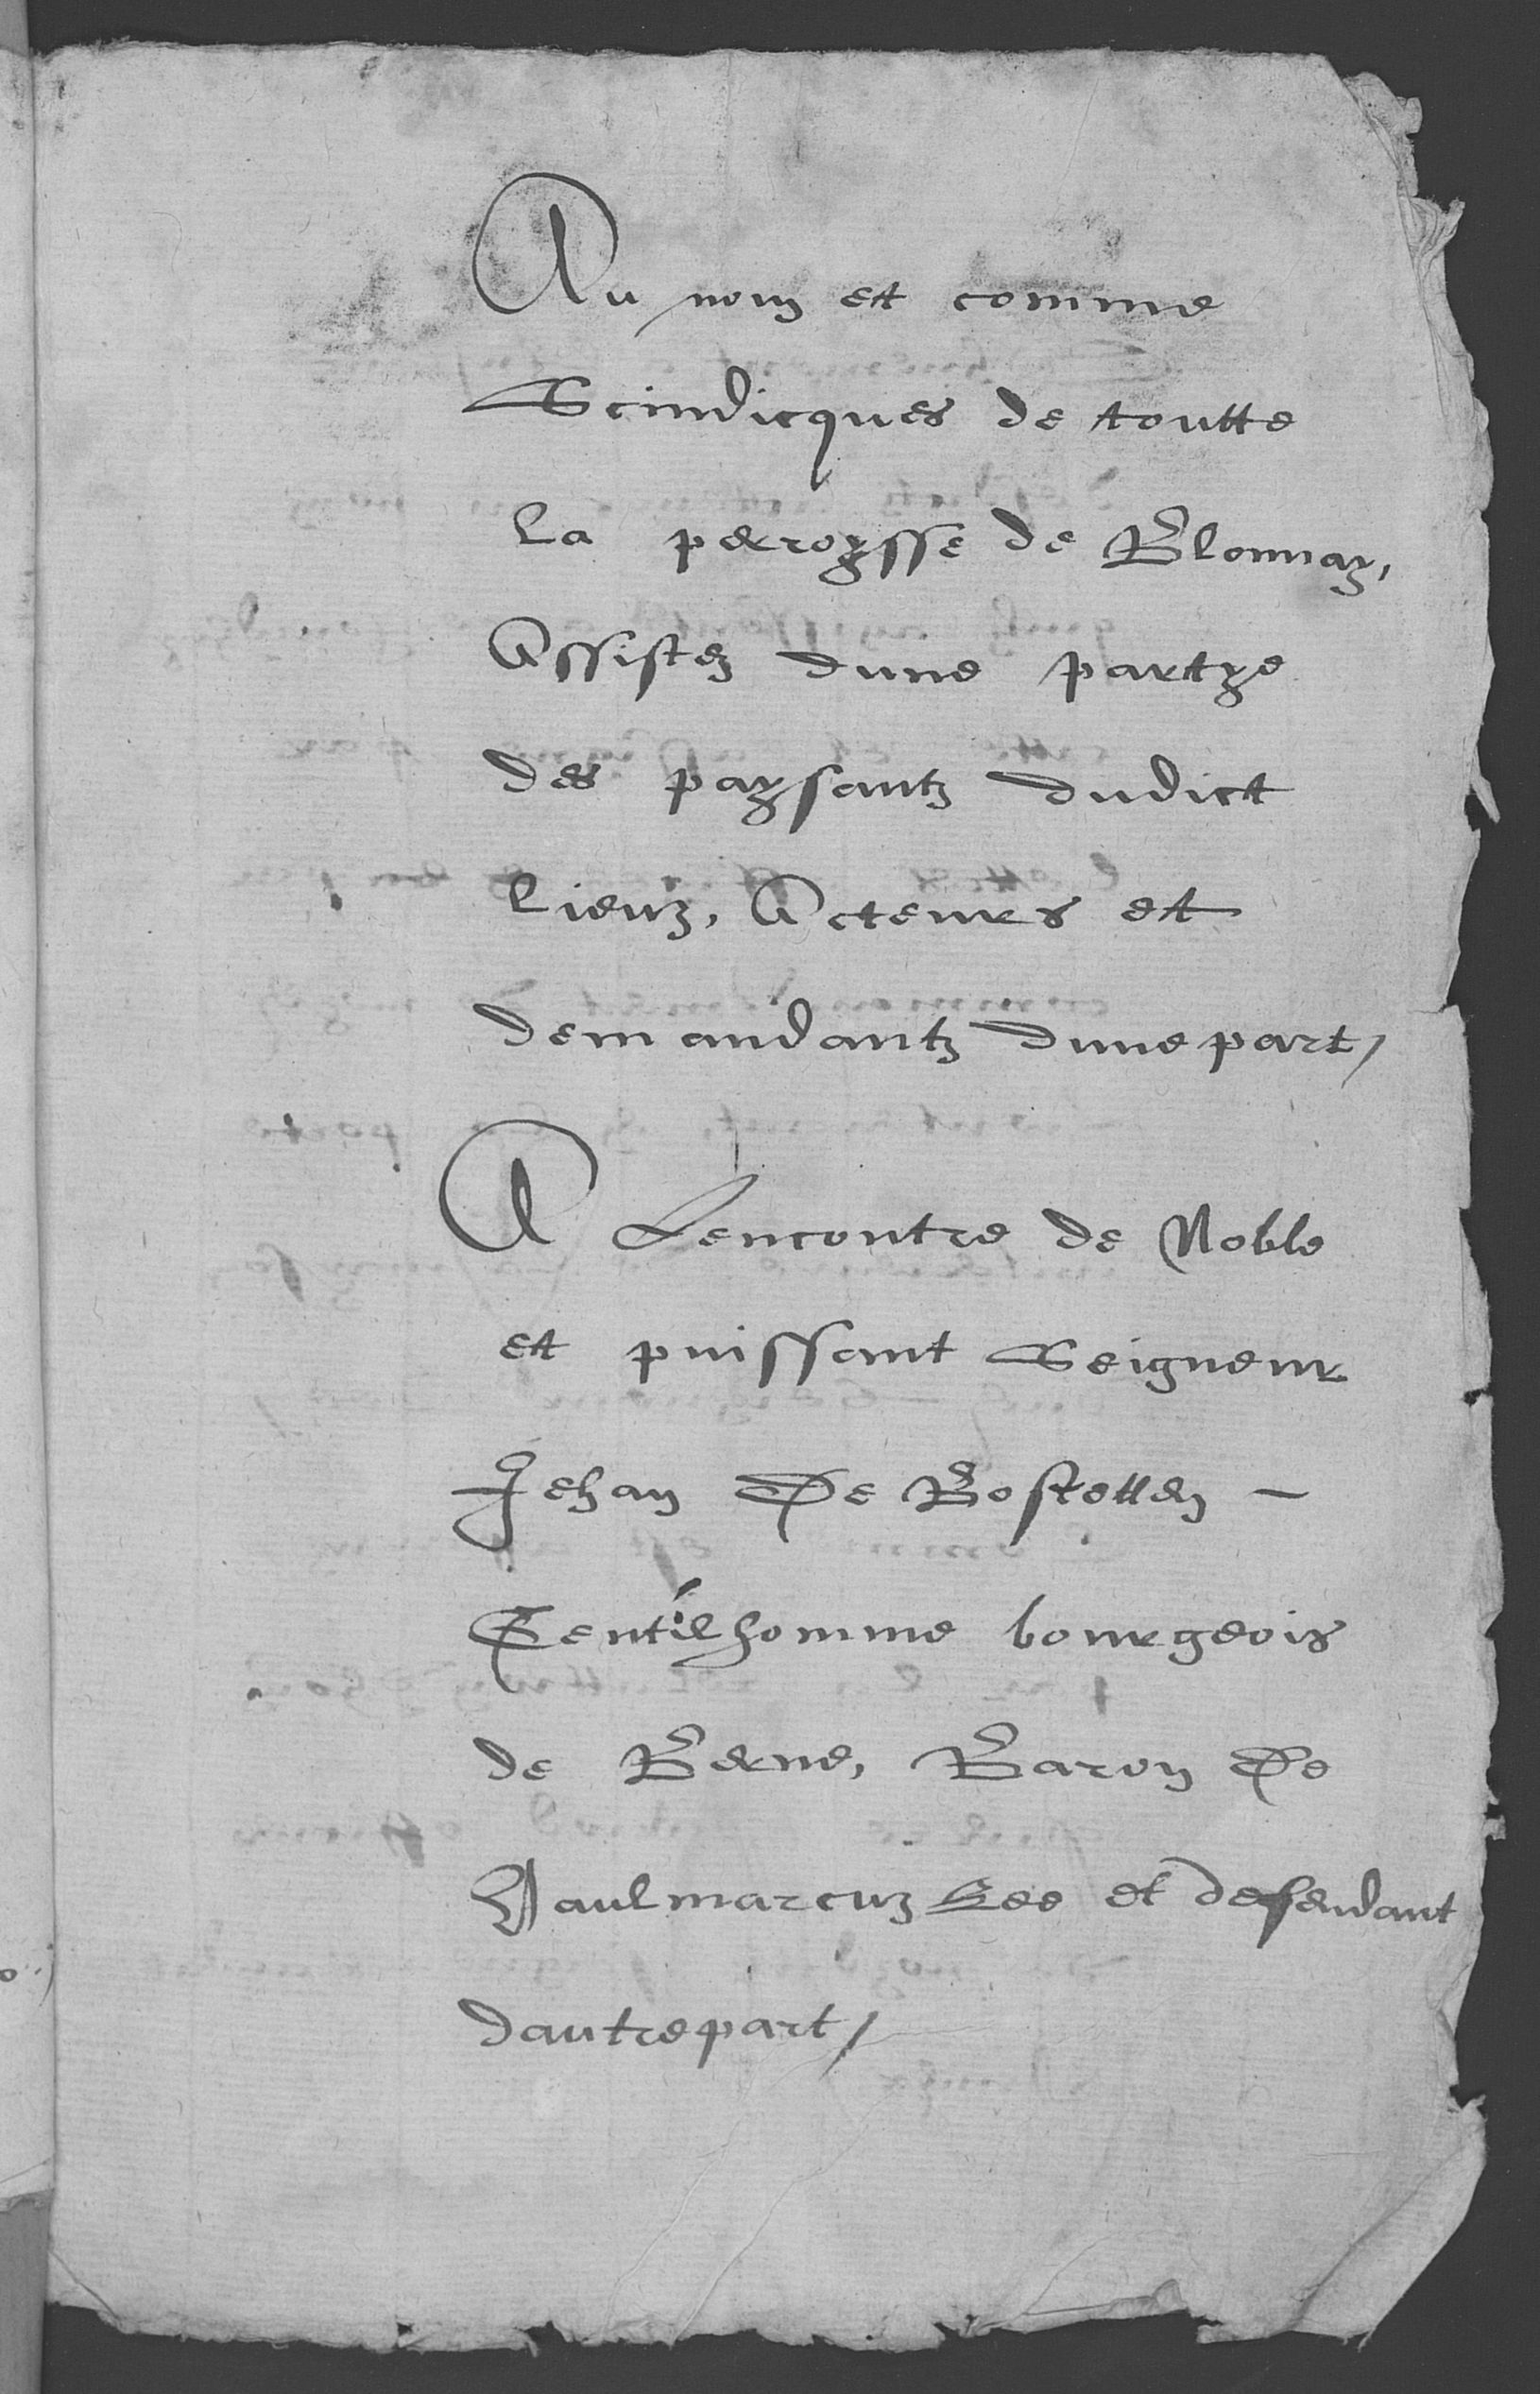 Au nom et comme
Scindicques de toutte
la perroysse de Blonnay,
Assistez dune partye
des paysantz dudict
lieuz, Acteurs et
demandantz dunepart/
A Lencontre de Noble
et puissant Seigneur
Jehan De Bostetten -
Gentilhomme bourgeois
de Berne, Baron De
Vaulmarcuz Ree et defendant
dautrepart/